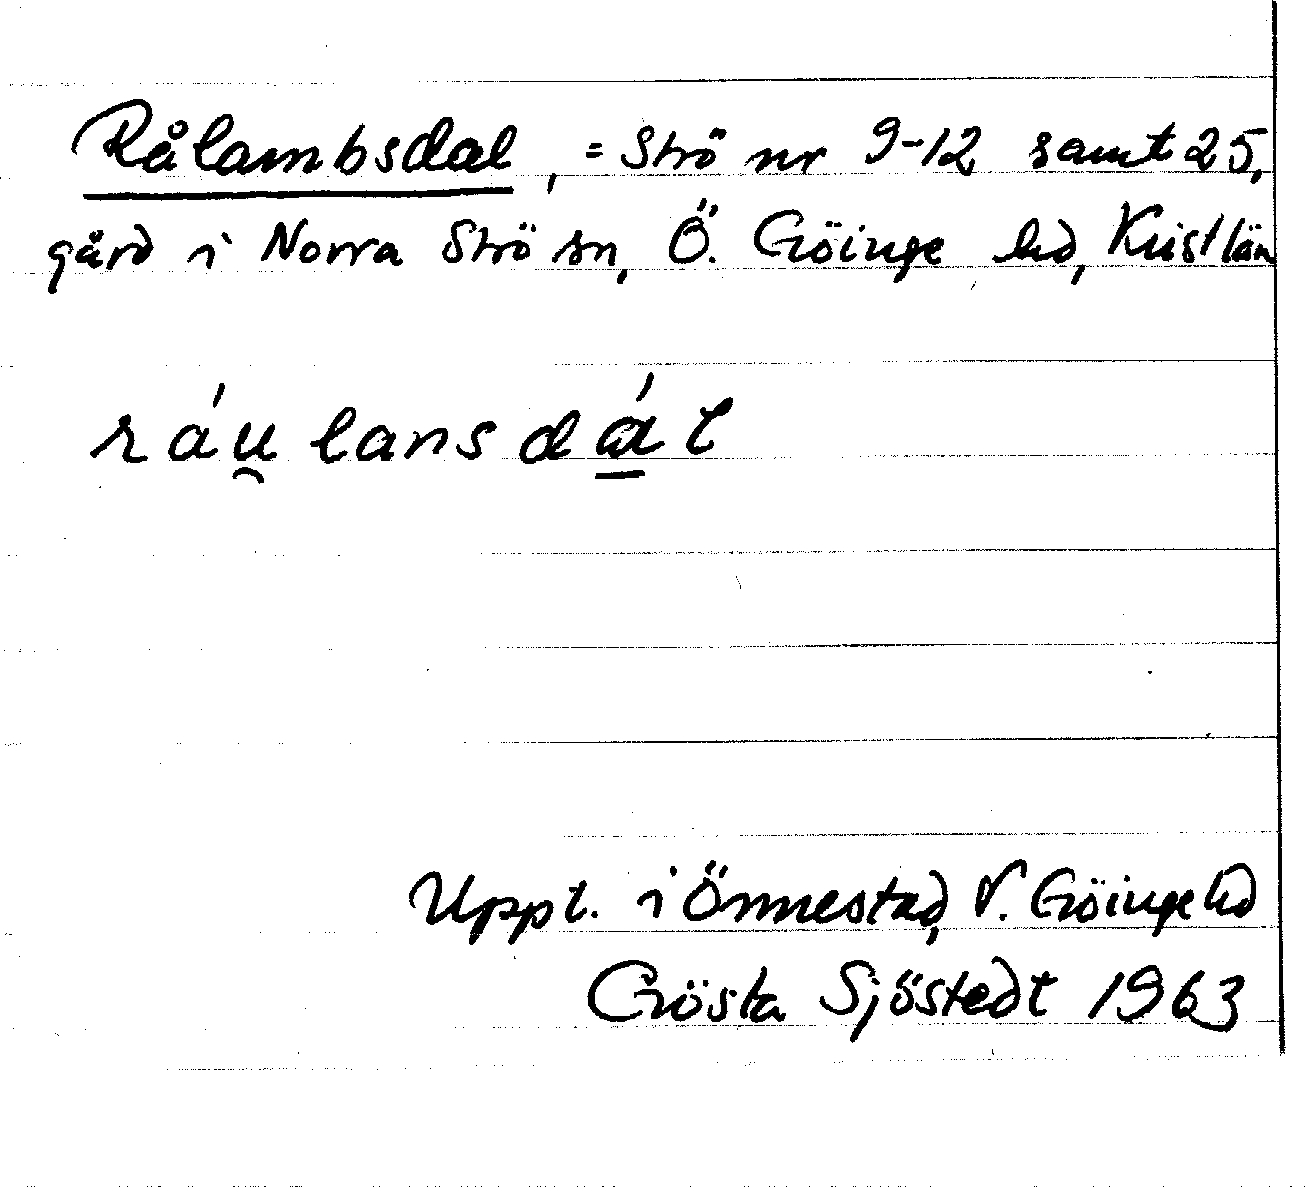 Rålambsdal, = Strö nr 9-12 samt 25,
gård i Norra Strö sn, Ö. Göinge hd, Kristl län
ráu̯lansdá̱l
Uppt. i Önnestad, V. Göinge hd
Gösta Sjöstedt 1963